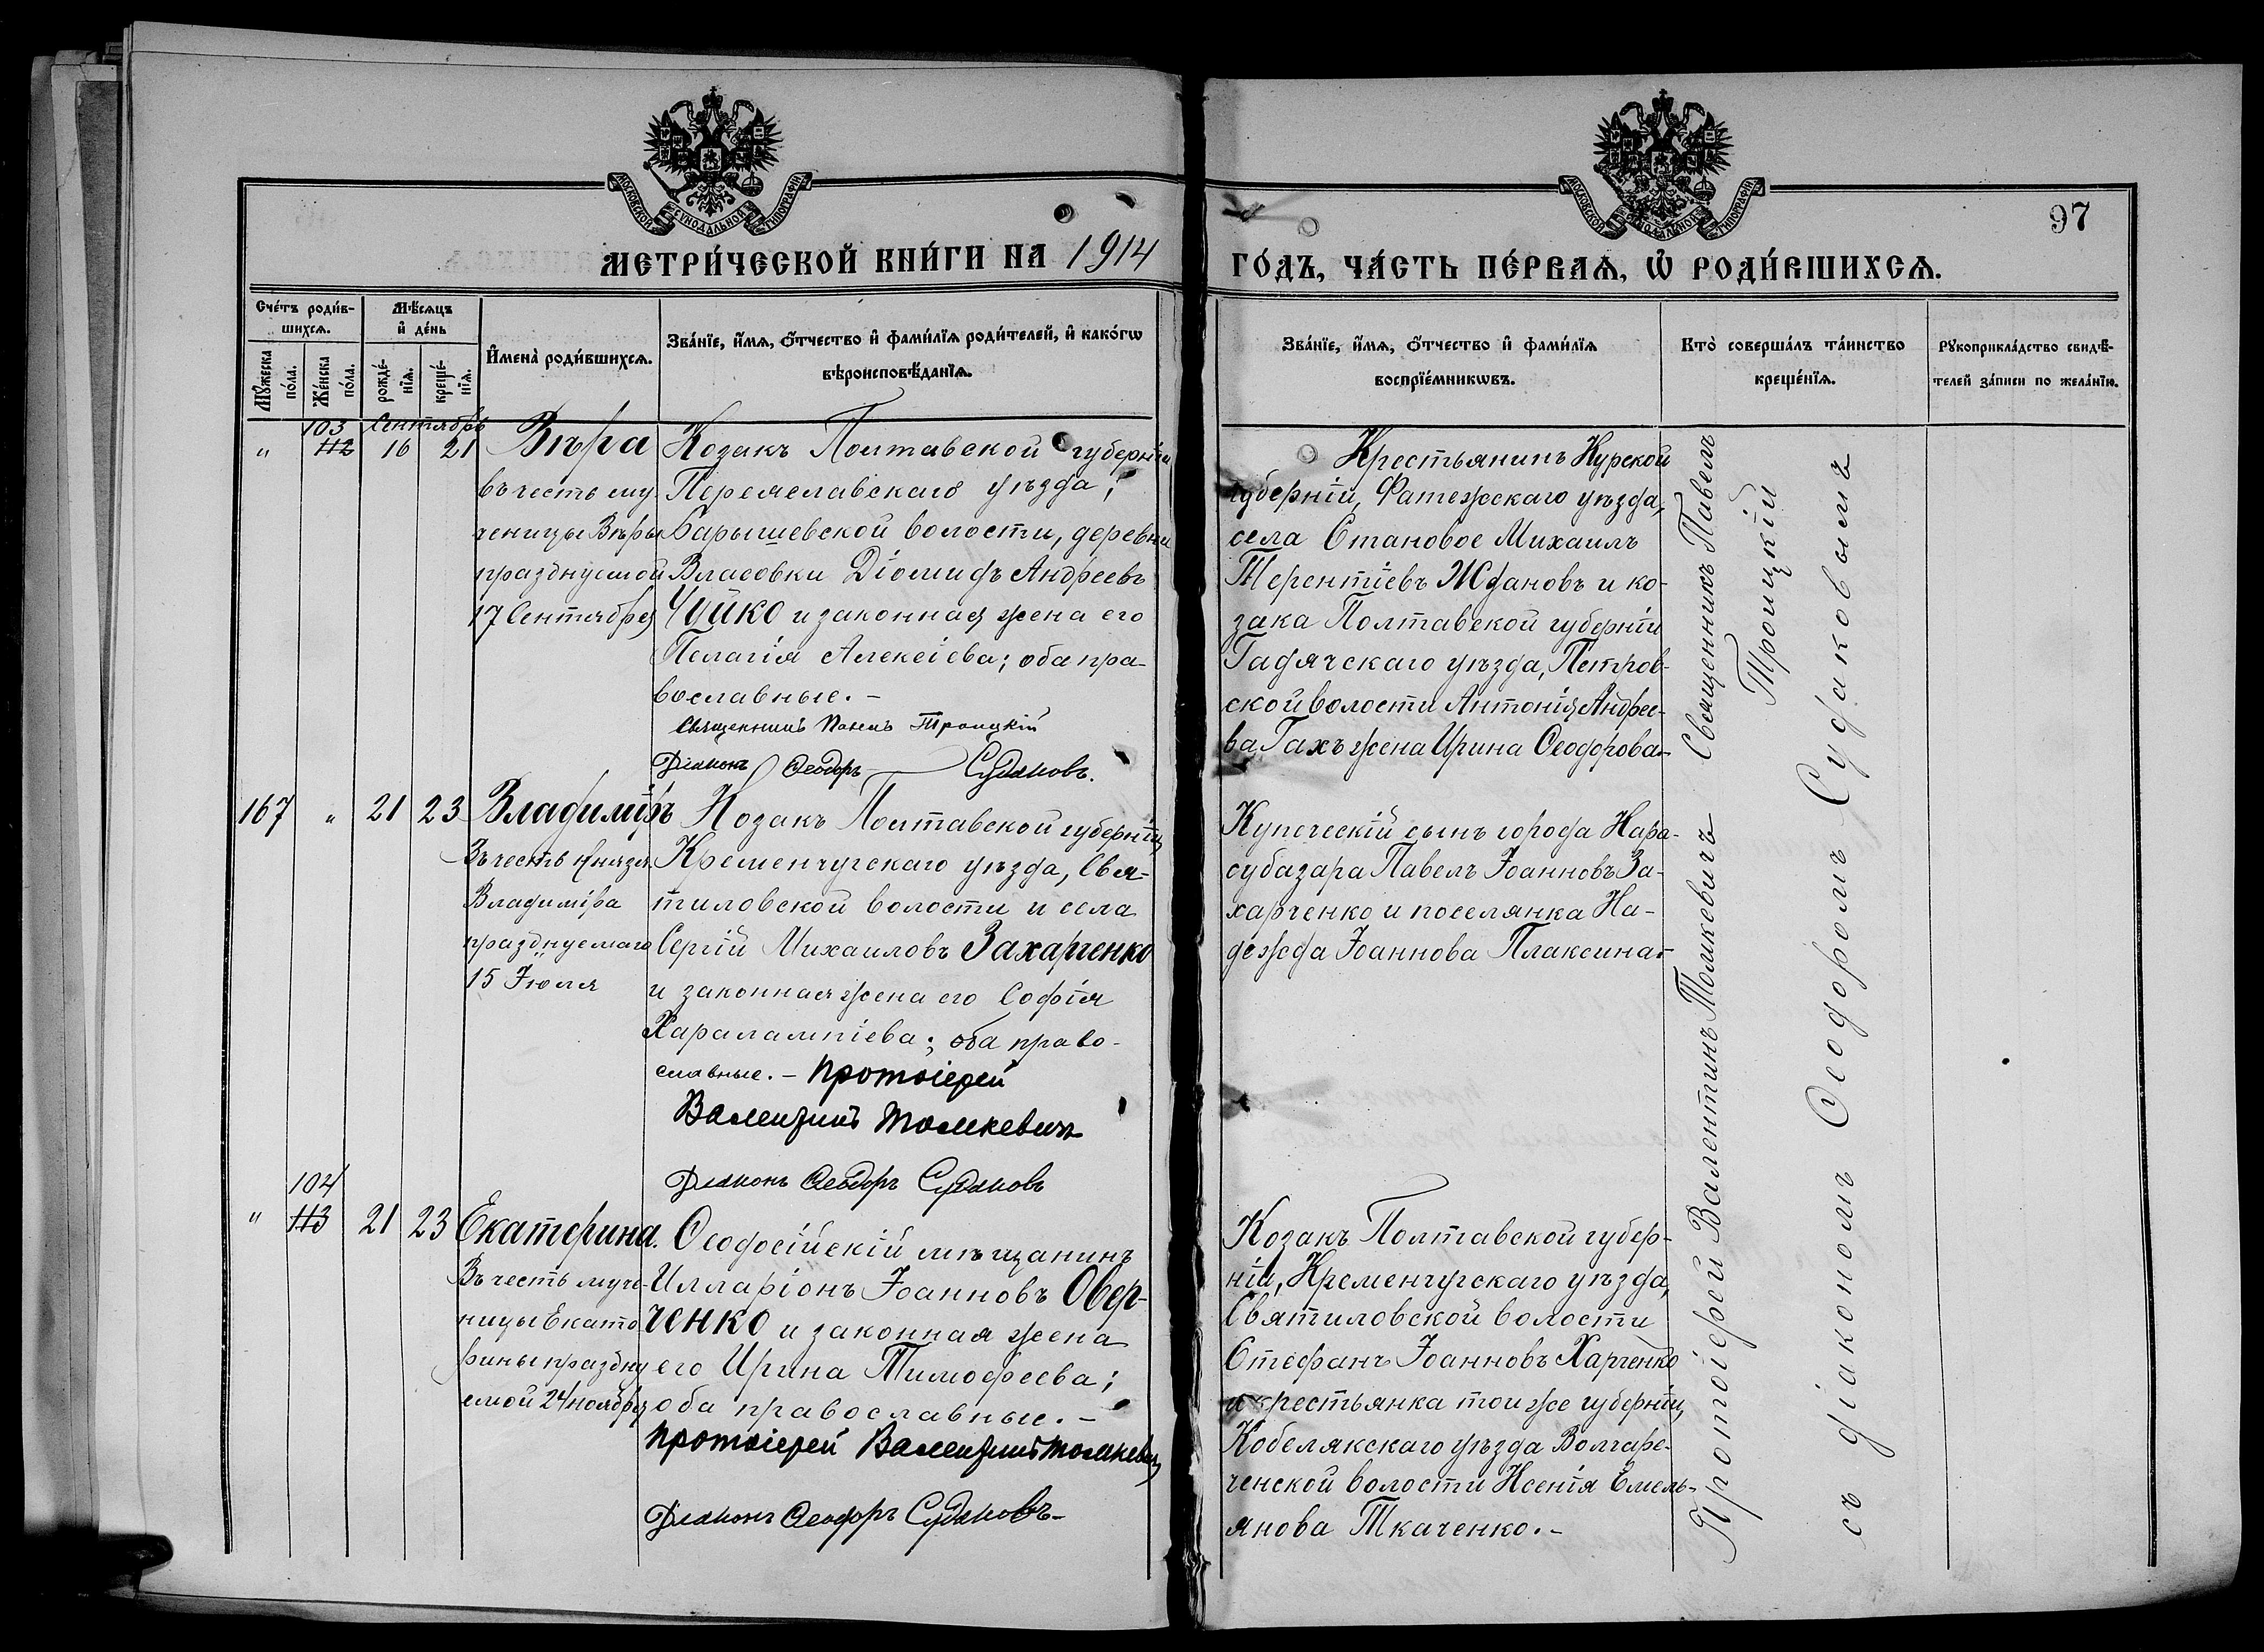 МОСКОВСКОЙ СѴНОДАЛЬНОЙ ТИПОГРАФІИ.
МОСКОВСКОЙ СѴНОДАЛЬНОЙ ТИПОГРАФІИ.
97
МЕТРИ́ЧЕСКОЙ КНИ́ГИ НА 1914
ГО́ДЪ, ЧА́СТЬ ПЕ́РВАѦ, Ѡ҆ РОДИ́ВШИХСѦ.
Сче́тъ роди́в-
шихсѧ.
Мꙋ́жеска по́ла.
Же́нска по́ла.
Мѣ́сѧцъ
и҆ де́нь
рожде́-
нїѧ.
креще́-
нїѧ.
И҆мена̀ роди́вшихсѧ.
Зва́нїе, и҆́мѧ, ѻ҆́тчество и҆ фами́лїѧ роди́телей, и҆ како́гѡ
вѣроисповѣ́данїѧ.
Зва́нїе, и҆́мѧ, ѻ҆́тчество и҆ фами́лїѧ
воспрїе́мникѡвъ.
Кто̀ соверша́лъ та́инство
креще́нїѧ.
Рꙋкоприкла́дство свидѣ́-
телей за́писи по жела́нїю.
Сентябрь
103
" 112 16 21
Вѣра
въ честь му-
ченицы Вѣры
празднуемой
17 Сентября
Козакъ Полтавской губерніи
Переяславскаго уѣзда,
Барышевской волости, деревни
Власовки Діомидъ Андреевъ
Чуйко и законная жена его
Пелагія Алексіева; оба пра-
вославные. –
Священникъ Павелъ Троицкій
Діаконъ Ѳеодоръ Судаковъ.
Крестьянинъ Курской
губерніи, Фатежскаго уѣзда,
села Становое Михаилъ
Терентіевъ Ждановъ и ко-
зака Полтавской губерніи
Гадячскаго уѣзда, Петров-
ской волости Антонія Андрее-
ва Гахъ жена Ирина Ѳеодорова
Священникъ Павелъ
Троицкій
167 " 21 23
Владиміръ
Въ честь Князя
Владиміра
празднуемаго
15 Іюля
Козакъ Полтавской губерніи,
Кременчугскаго уѣзда, Свя-
тиловской волости и села
Сергій Михаиловъ Захарченко
и законная жена его Софія
Харалампіева; оба право-
славные. – Протоіерей
Валентинъ Томкевичъ
Діаконъ Ѳеодоръ Судаковъ
Купеческій сынъ города Кара-
субазара Павелъ Іоанновъ За-
харченко и поселянка На-
дежда Іоаннова Плаксина
104
" 113 21 23
Екатерина.
Въ честь муче-
ницы Екате-
рины праздну
емой 24 ноября
Ѳеодосійскій мѣщанинъ
Илларіонъ Іоанновъ Овер-
ченко и законная жена
его Ирина Тимофеева;
оба православные. –
Протоіерей Валентинъ Томкевичъ
Діаконъ Ѳеодоръ Судаковъ
Козакъ Полтавской губер-
ніи, Кременчугскаго уѣзда,
Святиловской волости
Стефанъ Іоанновъ Харченко
и крестьянка той же губерніи,
Кобелякскаго уѣзда Волчаре-
ченской волости Ксенія Емель-
янова Ткаченко. –
Протоіерей Валентинъ Томкевичъ
съ діакономъ Ѳеодоромъ Судаковымъ